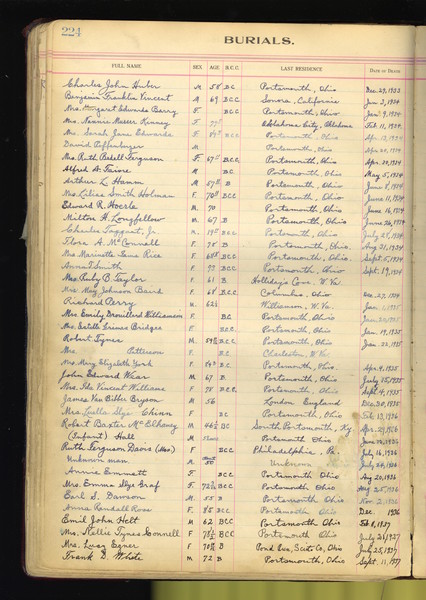 224
BURIALS.
FULL NAME SEX AGE B.C.C. LAST RESIDENCE DATE OF DEATH
Charles John Huber M 58 BC Portsmouth, Ohio Dec 29, 1933
Benjamin Franklin Vincent M 69 BCC Sonora, California Jan 3, 1934
Mrs. Margaret Edwards Barry F BCC Portsmouth, Ohio Jan 9, 1934
Mrs. Nannie Messer Kinney F Oklahoma City, Oklahoma Feb 11, 1934
Mrs. Sarah Jane Edwards F BCC Portsmouth, Ohio 1934
David Poffenbarger M Portsmouth, Ohio Apr 20, 1934
Mrs. Ruth Bebell Ferguson F 67 BCC Portsmouth, Ohio Apr 30, 1934
Alfred A. M BC Portsmouth, Ohio May 5, 1934
Arthur L. Hamm M 57 B Portsmouth, Ohio June 8, 1934
Mrs. Lilias Smith Holman F 70 BCC Portsmouth, Ohio June 11, 1934
Edward R. Hoerle M. 70 Portsmouth, Ohio June 16, 1934
Milton H. Longfellow M 67 B Portsmouth, Ohio June 26, 1934
Charles Taggart, Jr. M. 19 BCC Portsmouth, Ohio July 1934
Flora A. McConnell F 75 B Portsmouth, Ohio. Aug 31, 1934
Mrs. Marinetta Gunn Rice F 68 BCC Portsmouth, Ohio Sept. 5, 1934
Anna T. Smith F 77 BCC Portsmouth, Ohio Sept. 19, 1934
Mrs. Ruby B. Taylor F 61 B Holliday's Cove, W. Va.
Mrs. May Johnson Baird F 68 BCC Columbus, Ohio Dec. 27, 1934
Richard Perry M. 62 Williamson, W. Va. Jan 1935
Mrs. Emily Drouillard Williamson F. BC Portsmouth, Ohio Jan 1935
Mrs. Estelle Grimes Bridges F. BCC Portsmouth, Ohio Jan. 19, 1935
Robert Tynes M. BCC Portsmouth, Ohio Jan 22, 1935
Mrs. Patterson F. BC Charleston, W. Va.
Mrs. Mary Elizabeth York F. BC Portsmouth, Ohio. Apr. 4, 1935
John Edward Wear M 67 B Portsmouth, Ohio July 25, 1935
Mrs. Ida Vincent Williams F 75 BCC. Portsmouth, Ohio Sept. 4, 1935
James Van Bibber Bryson M 56 London England Dec. 30, 1935
Mrs. Luella Slye Chinn F BC Portsmouth, Ohio Feb 13, 1936
Robert Baxter McElhaney M 46½ BC South Portsmouth, Ky Apr. 2, 1936
(Infant) Hall M Portsmouth Ohio 1936
Ruth Ferguson Davis (Mrs) F BCC Philadelphia. Pa. July 16, 1936
Unknown man M about 50 Unknown July 24, 1936
Annie Emmett F BCC Portsmouth Ohio Aug 20, 1936
Mrs. Emma Slye Graf F. 72 BCC Portsmouth Ohio Aug 25, 1936
Earl S. Dawson M. 55 B Portsmouth Ohio Nov. 2, 1936
Anna Randall Ross F. 85 BCC Portsmouth Ohio Dec. 1936
Emil John Helt M 62 BCC Portsmouth Ohio Feb 8, 1937
Mrs. Nellie Tynes Connell F 78½ BCC Portsmouth Ohio July 21, 1937
Mrs. Lucy Egner F 70 B Pond Run, Scioto Co, Ohio July 25, 1937
Frank D. White M 72 B Portsmouth, Ohio Sept. 11, 1937